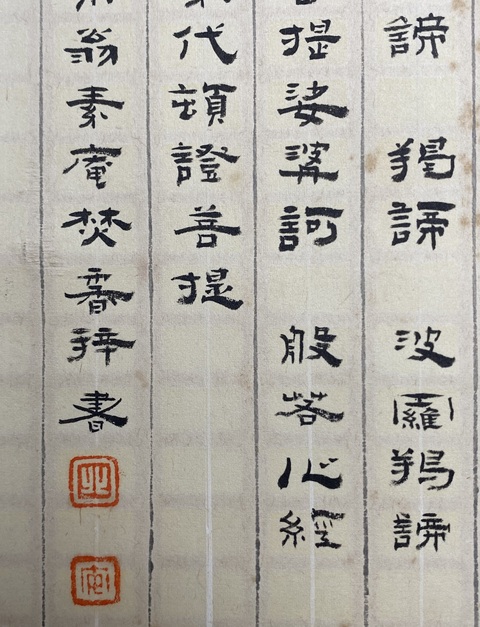 諦 羯諦 波囉羯諦
提娑婆訶 般若心經
代頓證菩提
翁素庵焚香拜書